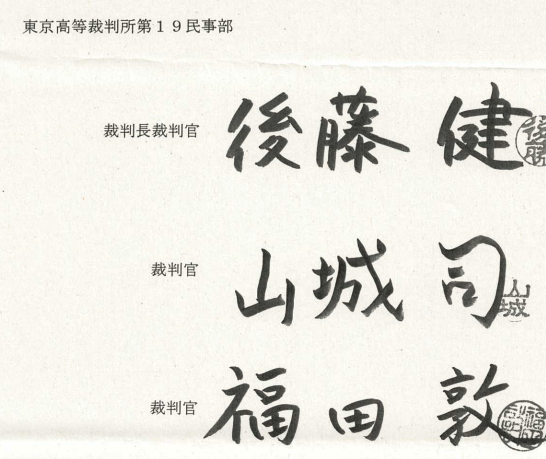 東京高等裁判所第１９民事部
裁判長裁判官 後藤 健
後藤
裁判官 山城 司
山城
裁判官 福田 敦